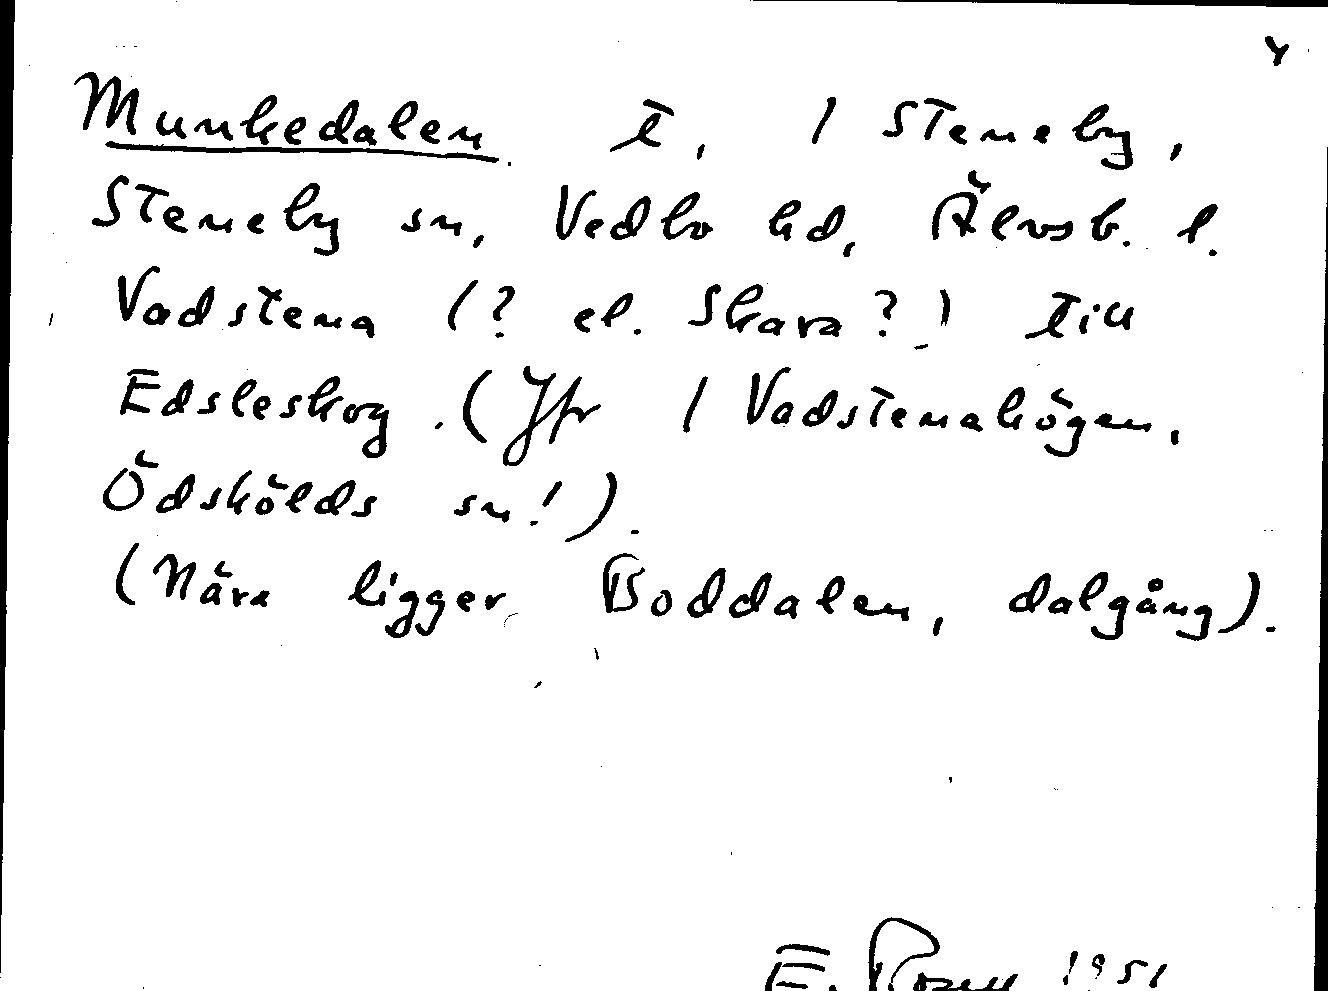 4
Munkedalen t, / Steneby,
Steneby sn, Vedbo hd, Älvsb. l.
Vadstena (? el. Skara?) till
Edsleskog. (Jfr / Vadstenahögen,
Ödskölds sn!).
(Nära ligger Boddalen, dalgång).
E. Rosell 1951